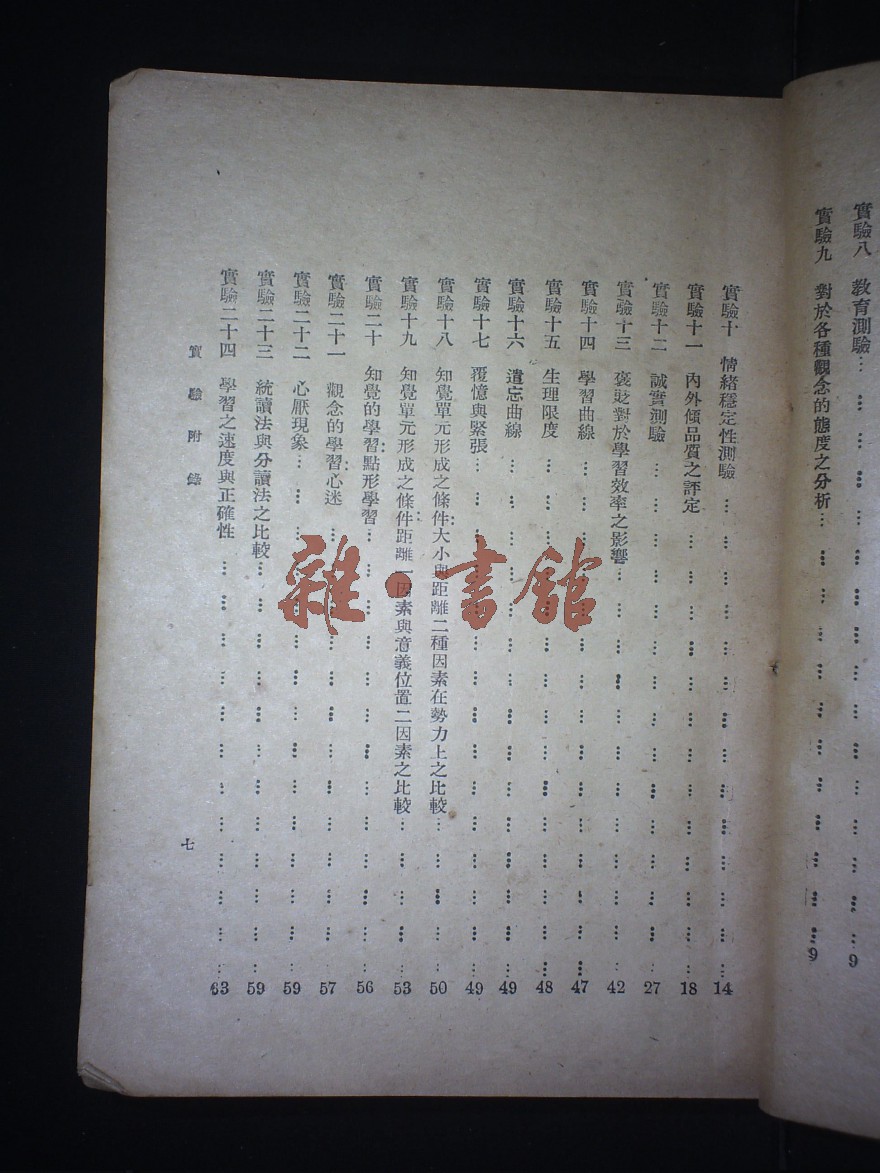 實驗八　教育測驗……………………………9
實驗九　對於各種觀念的態度之分析……………………9
實驗十　情緒穩定性測驗……………………………14
實驗十一　內外傾品質之評定……………………………18
實驗十二　誠實測驗……………………………27
實驗十三　褒貶對於學習效率之影響……………………………42
實驗十四　學習曲線……………………………47
實驗十五　生理限度……………………………48
實驗十六　遺忘曲線……………………………49
實驗十七　覆憶與緊張……………………………49
實驗十八　知覺單元形成之條件：大小與距離二種因素在勢力上之比較……………50
實驗十九　知覺單元形成之條件：距離一因素與意義位置二因素之比較……………53
實驗二十　知覺的學習：點形學習……………………………56
實驗二十一　觀念的學習：心迷……………………………57
實驗二十二　心厭現象……………………………59
實驗二十三　統讀法與分讀法之比較……………………………59
實驗二十四　學習之速度與正確性……………………………63
實驗附錄
七
雜·書館